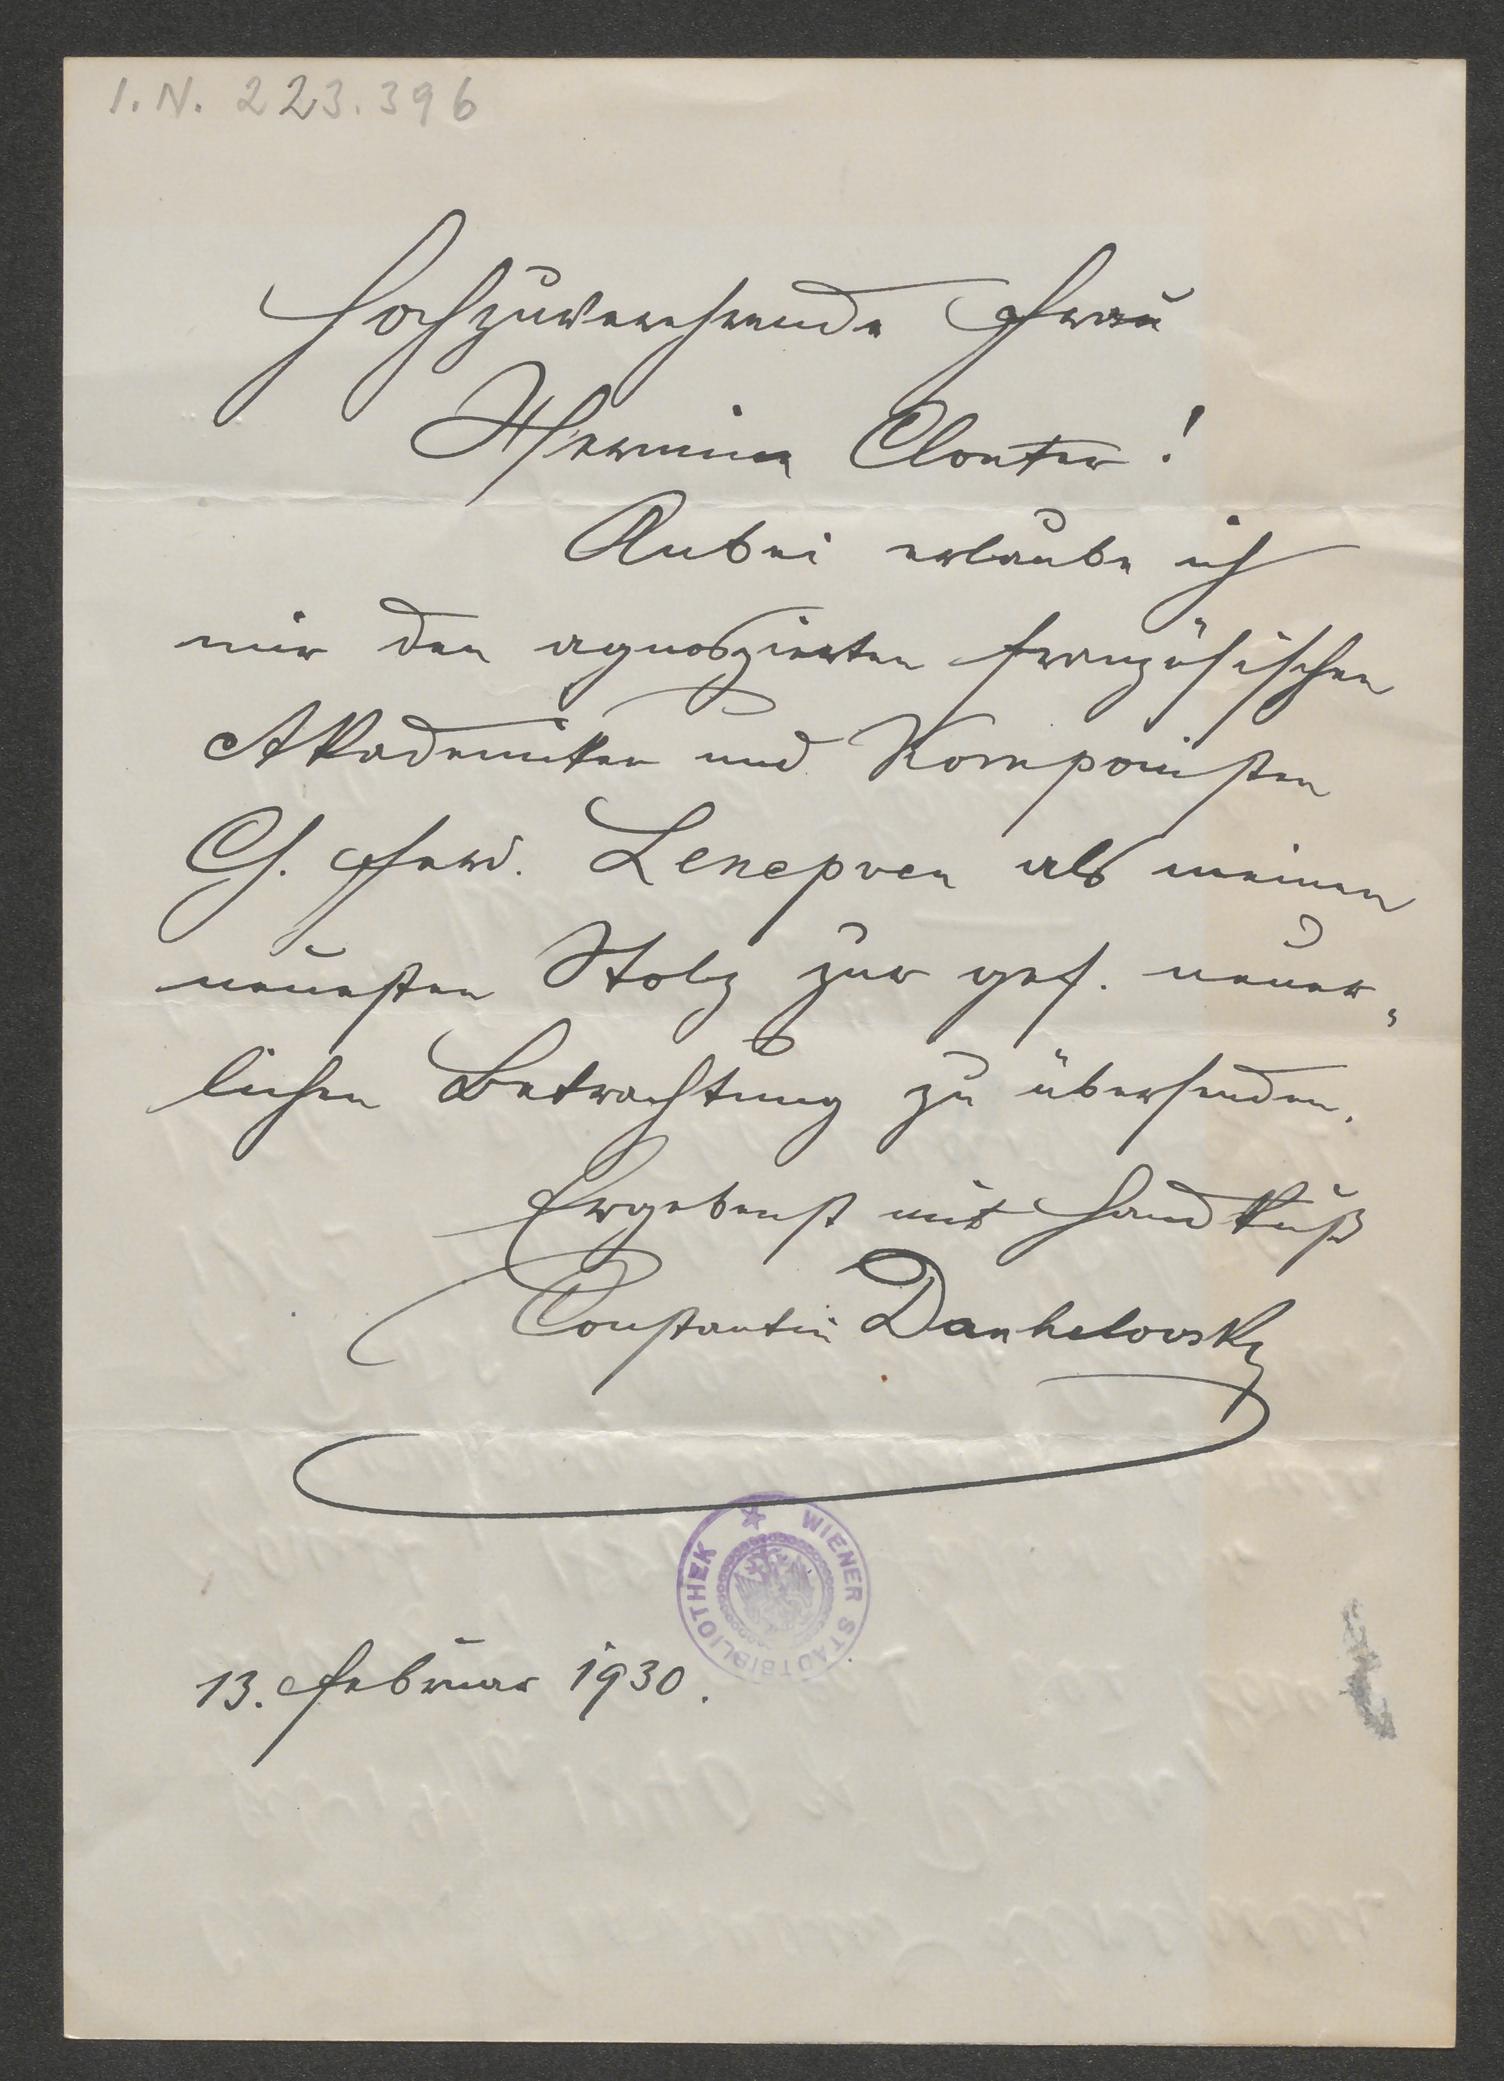 I. N. 223.396
Hochzuverehrende Frau
Hermine Cloeter!
Anbei erlaube ich
mir den agnoszierten französischen
Akademiker und Komponisten
Ch. Ferd. Lenepveu als meinen
neuesten Stolz zur gef. neuer„
lichen Betrachtung zu übersenden.
Ergebenst mit Handkuß
Constantin Danhelovsky
WIENER STADTBIBLIOTHEK
13. Februar 1930.